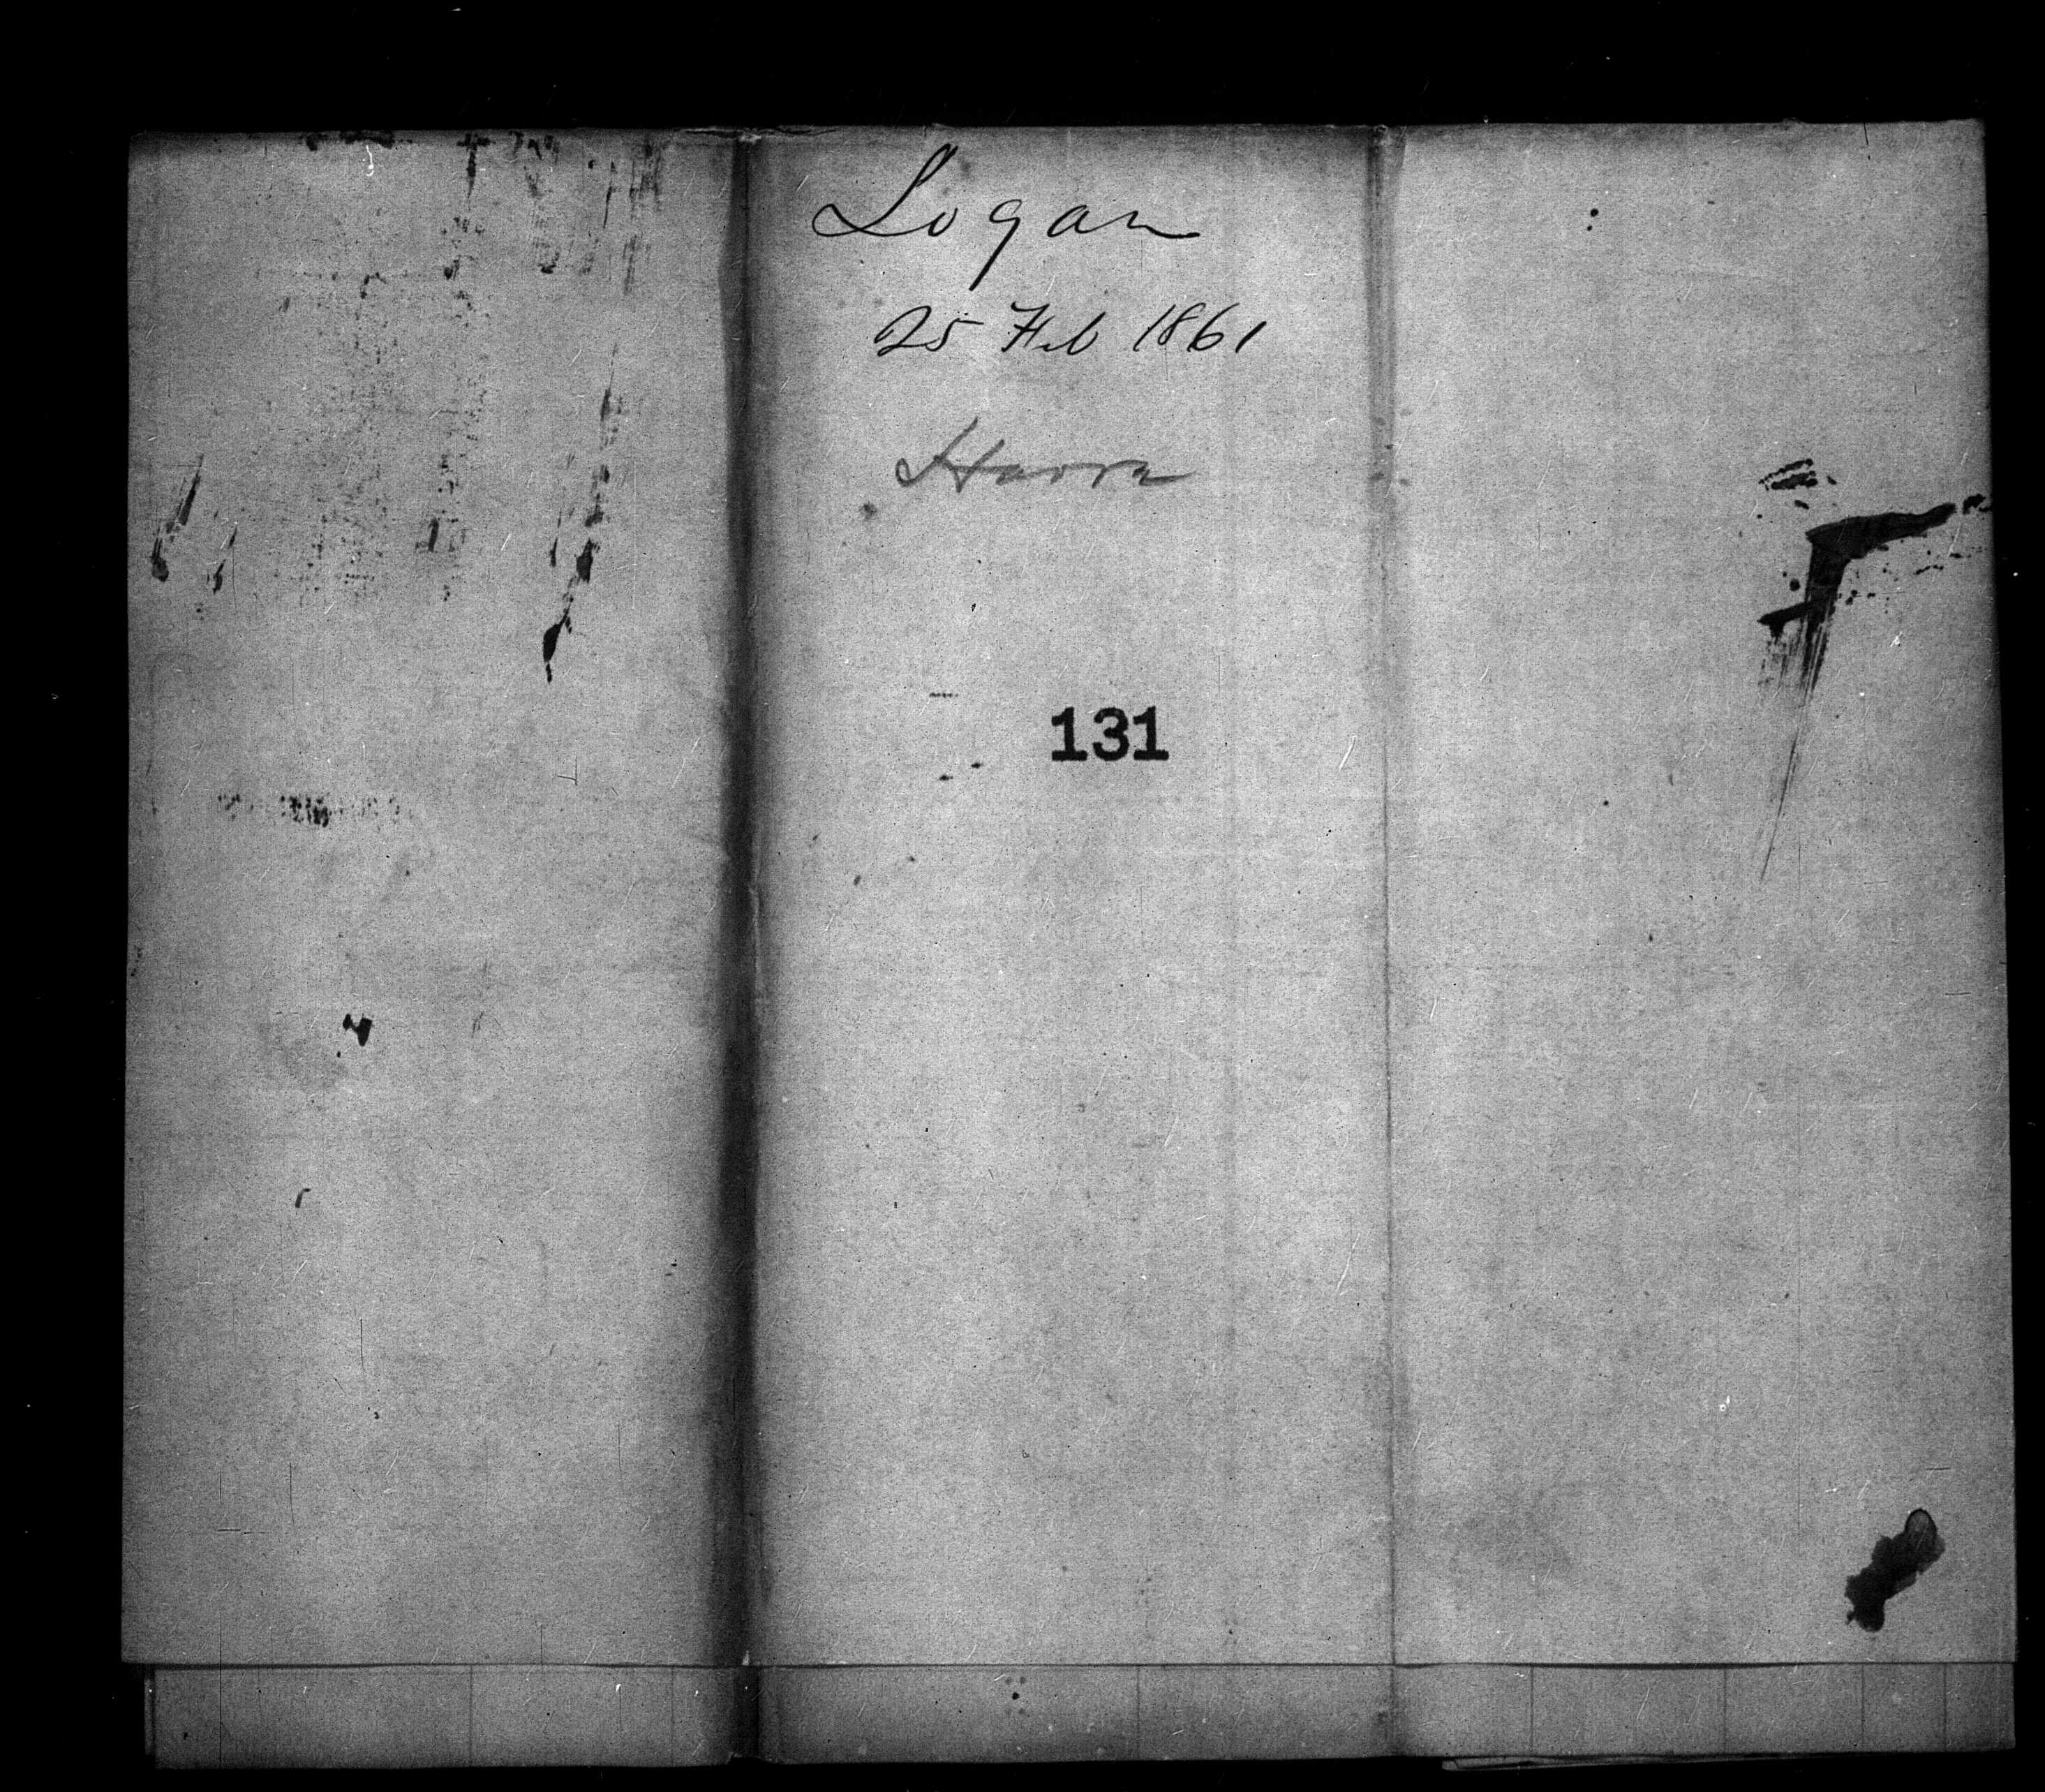 Logan
25 Feb 1861
131